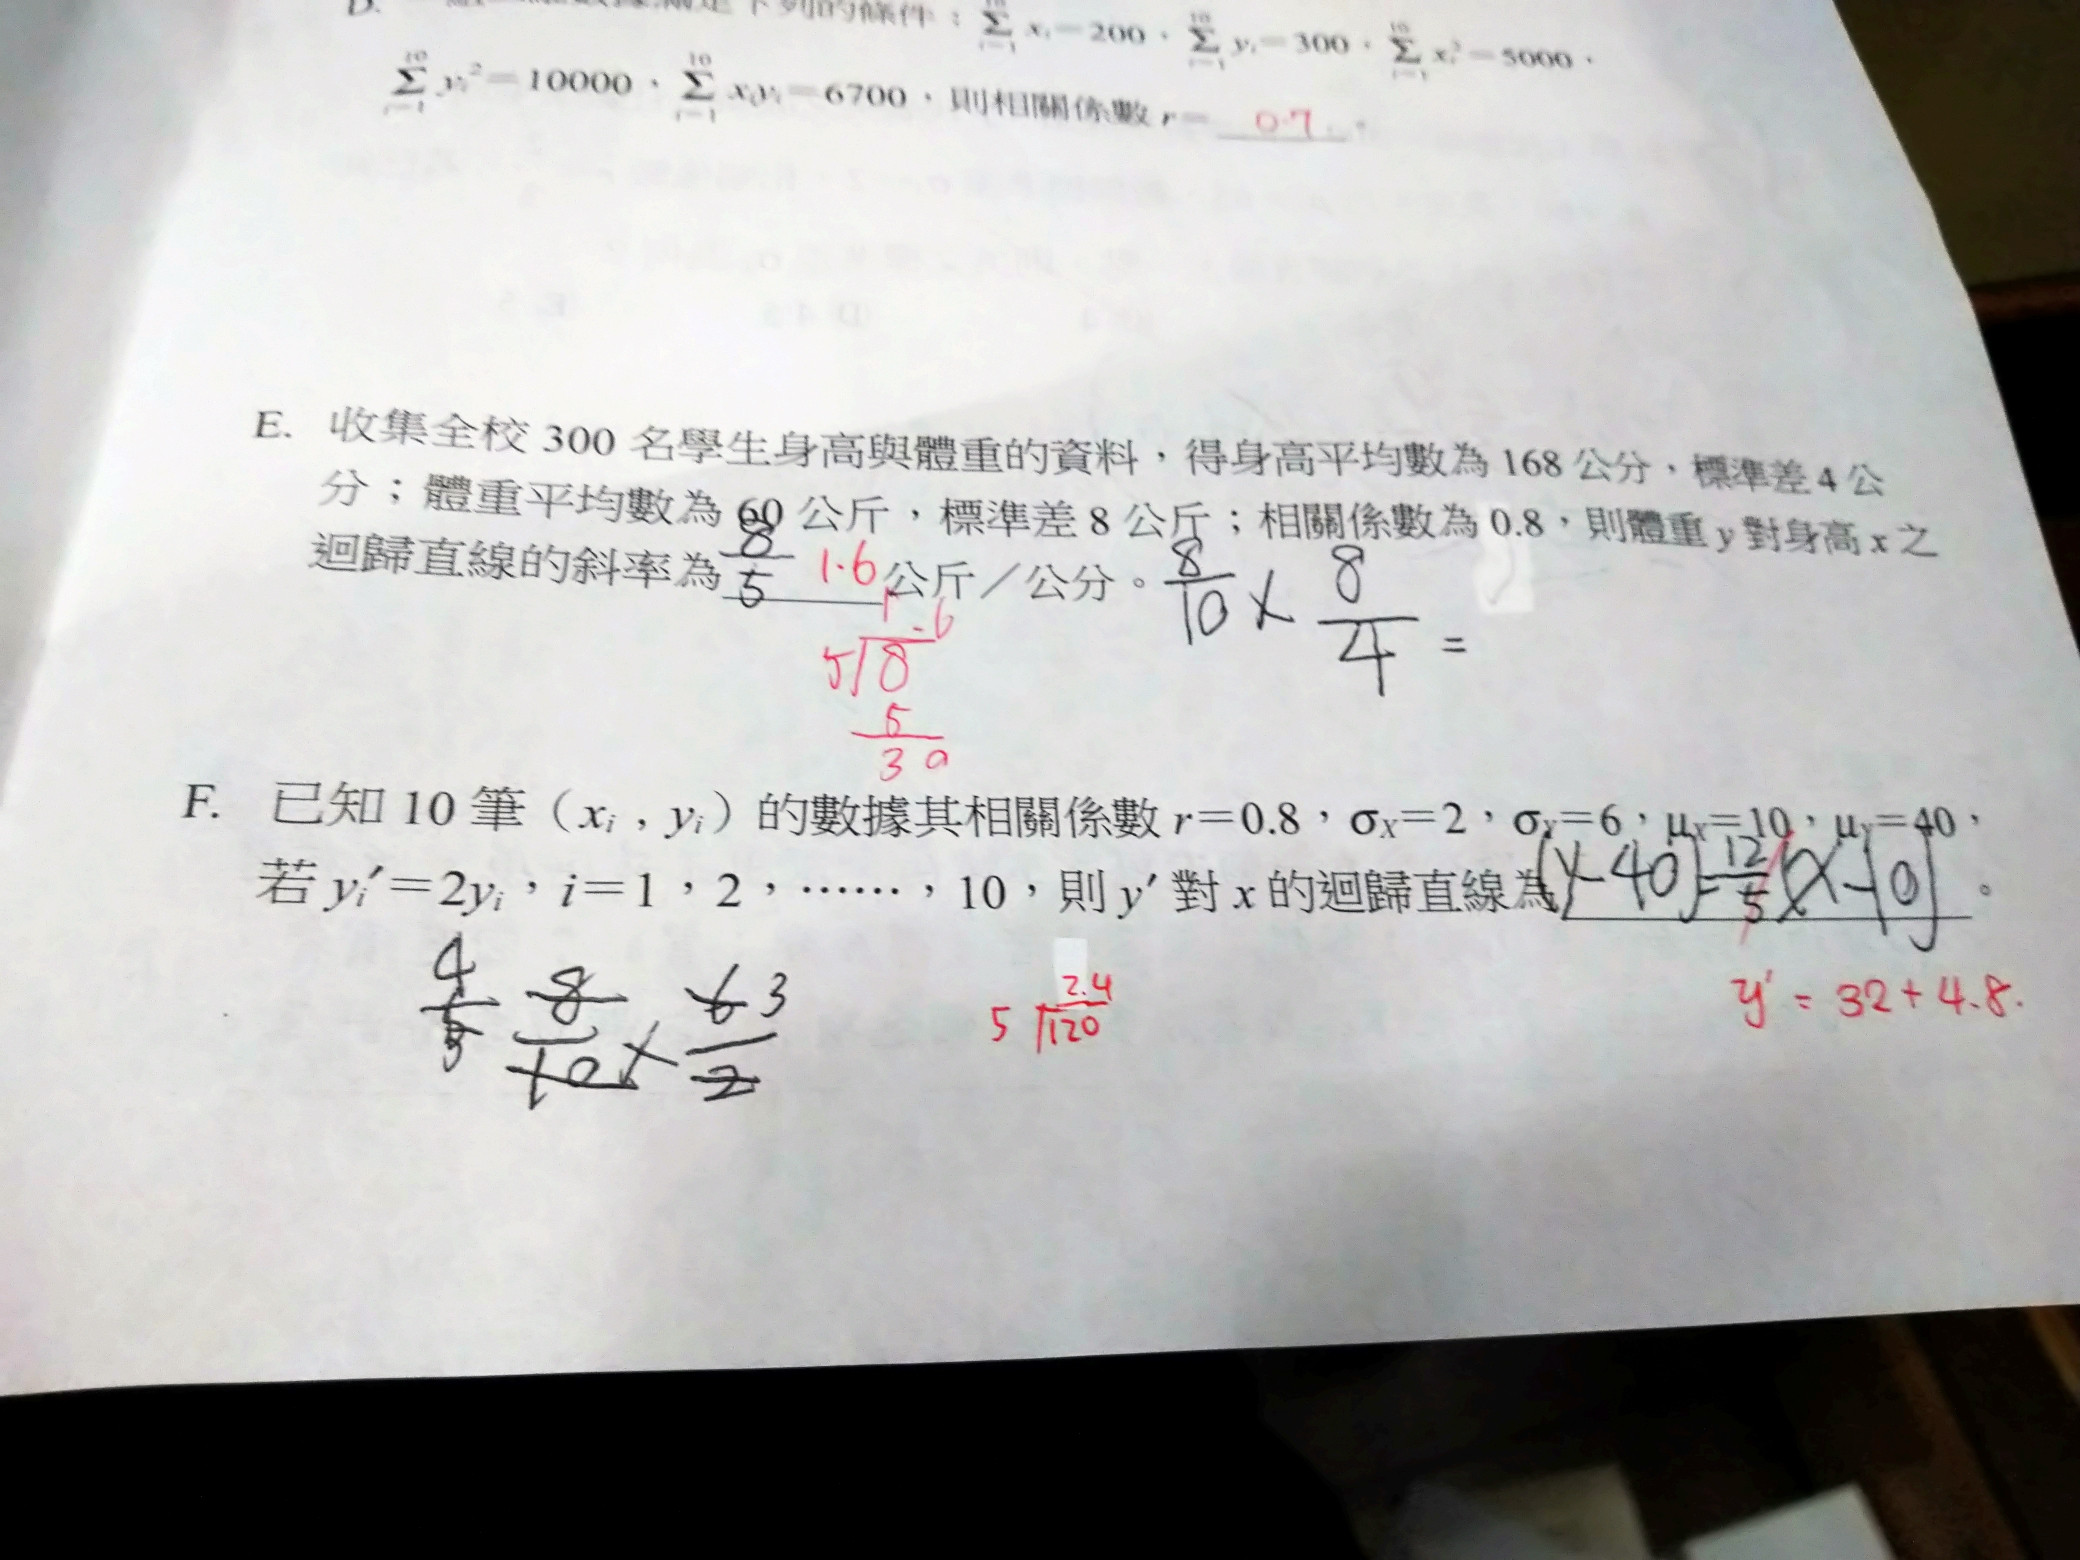 D. 下列的條件：\sum_{i=1}^{10} x_i＝200，\sum_{i=1}^{10} y_i＝300，\sum_{i=1}^{10} x_i^2＝5000，
\sum_{i=1}^{10} y_i^2＝10000，\sum_{i=1}^{10} x_i y_i＝6700，則相關係數 r＝ 0.7 。
E. 收集全校 300 名學生身高與體重的資料，得身高平均數為 168 公分，標準差 4 公
分；體重平均數為 60 公斤，標準差 8 公斤；相關係數為 0.8，則體重 y 對身高 x 之
迴歸直線的斜率為 8/5 1.6 公斤／公分。 8/10 × 8/4 =
1.6
5 8
5
30
F. 已知 10 筆（x_i , y_i）的數據其相關係數 r＝0.8，σ_X＝2，σ_Y＝6，μ_X＝10，μ_Y＝40，
若 y_i′＝2y_i，i＝1，2，……，10，則 y′ 對 x 的迴歸直線為 (y-40)=12/5(x-10) 。
4/5 8/10 × 6/2 3
2.4
5 120
y' = 32+4.8.